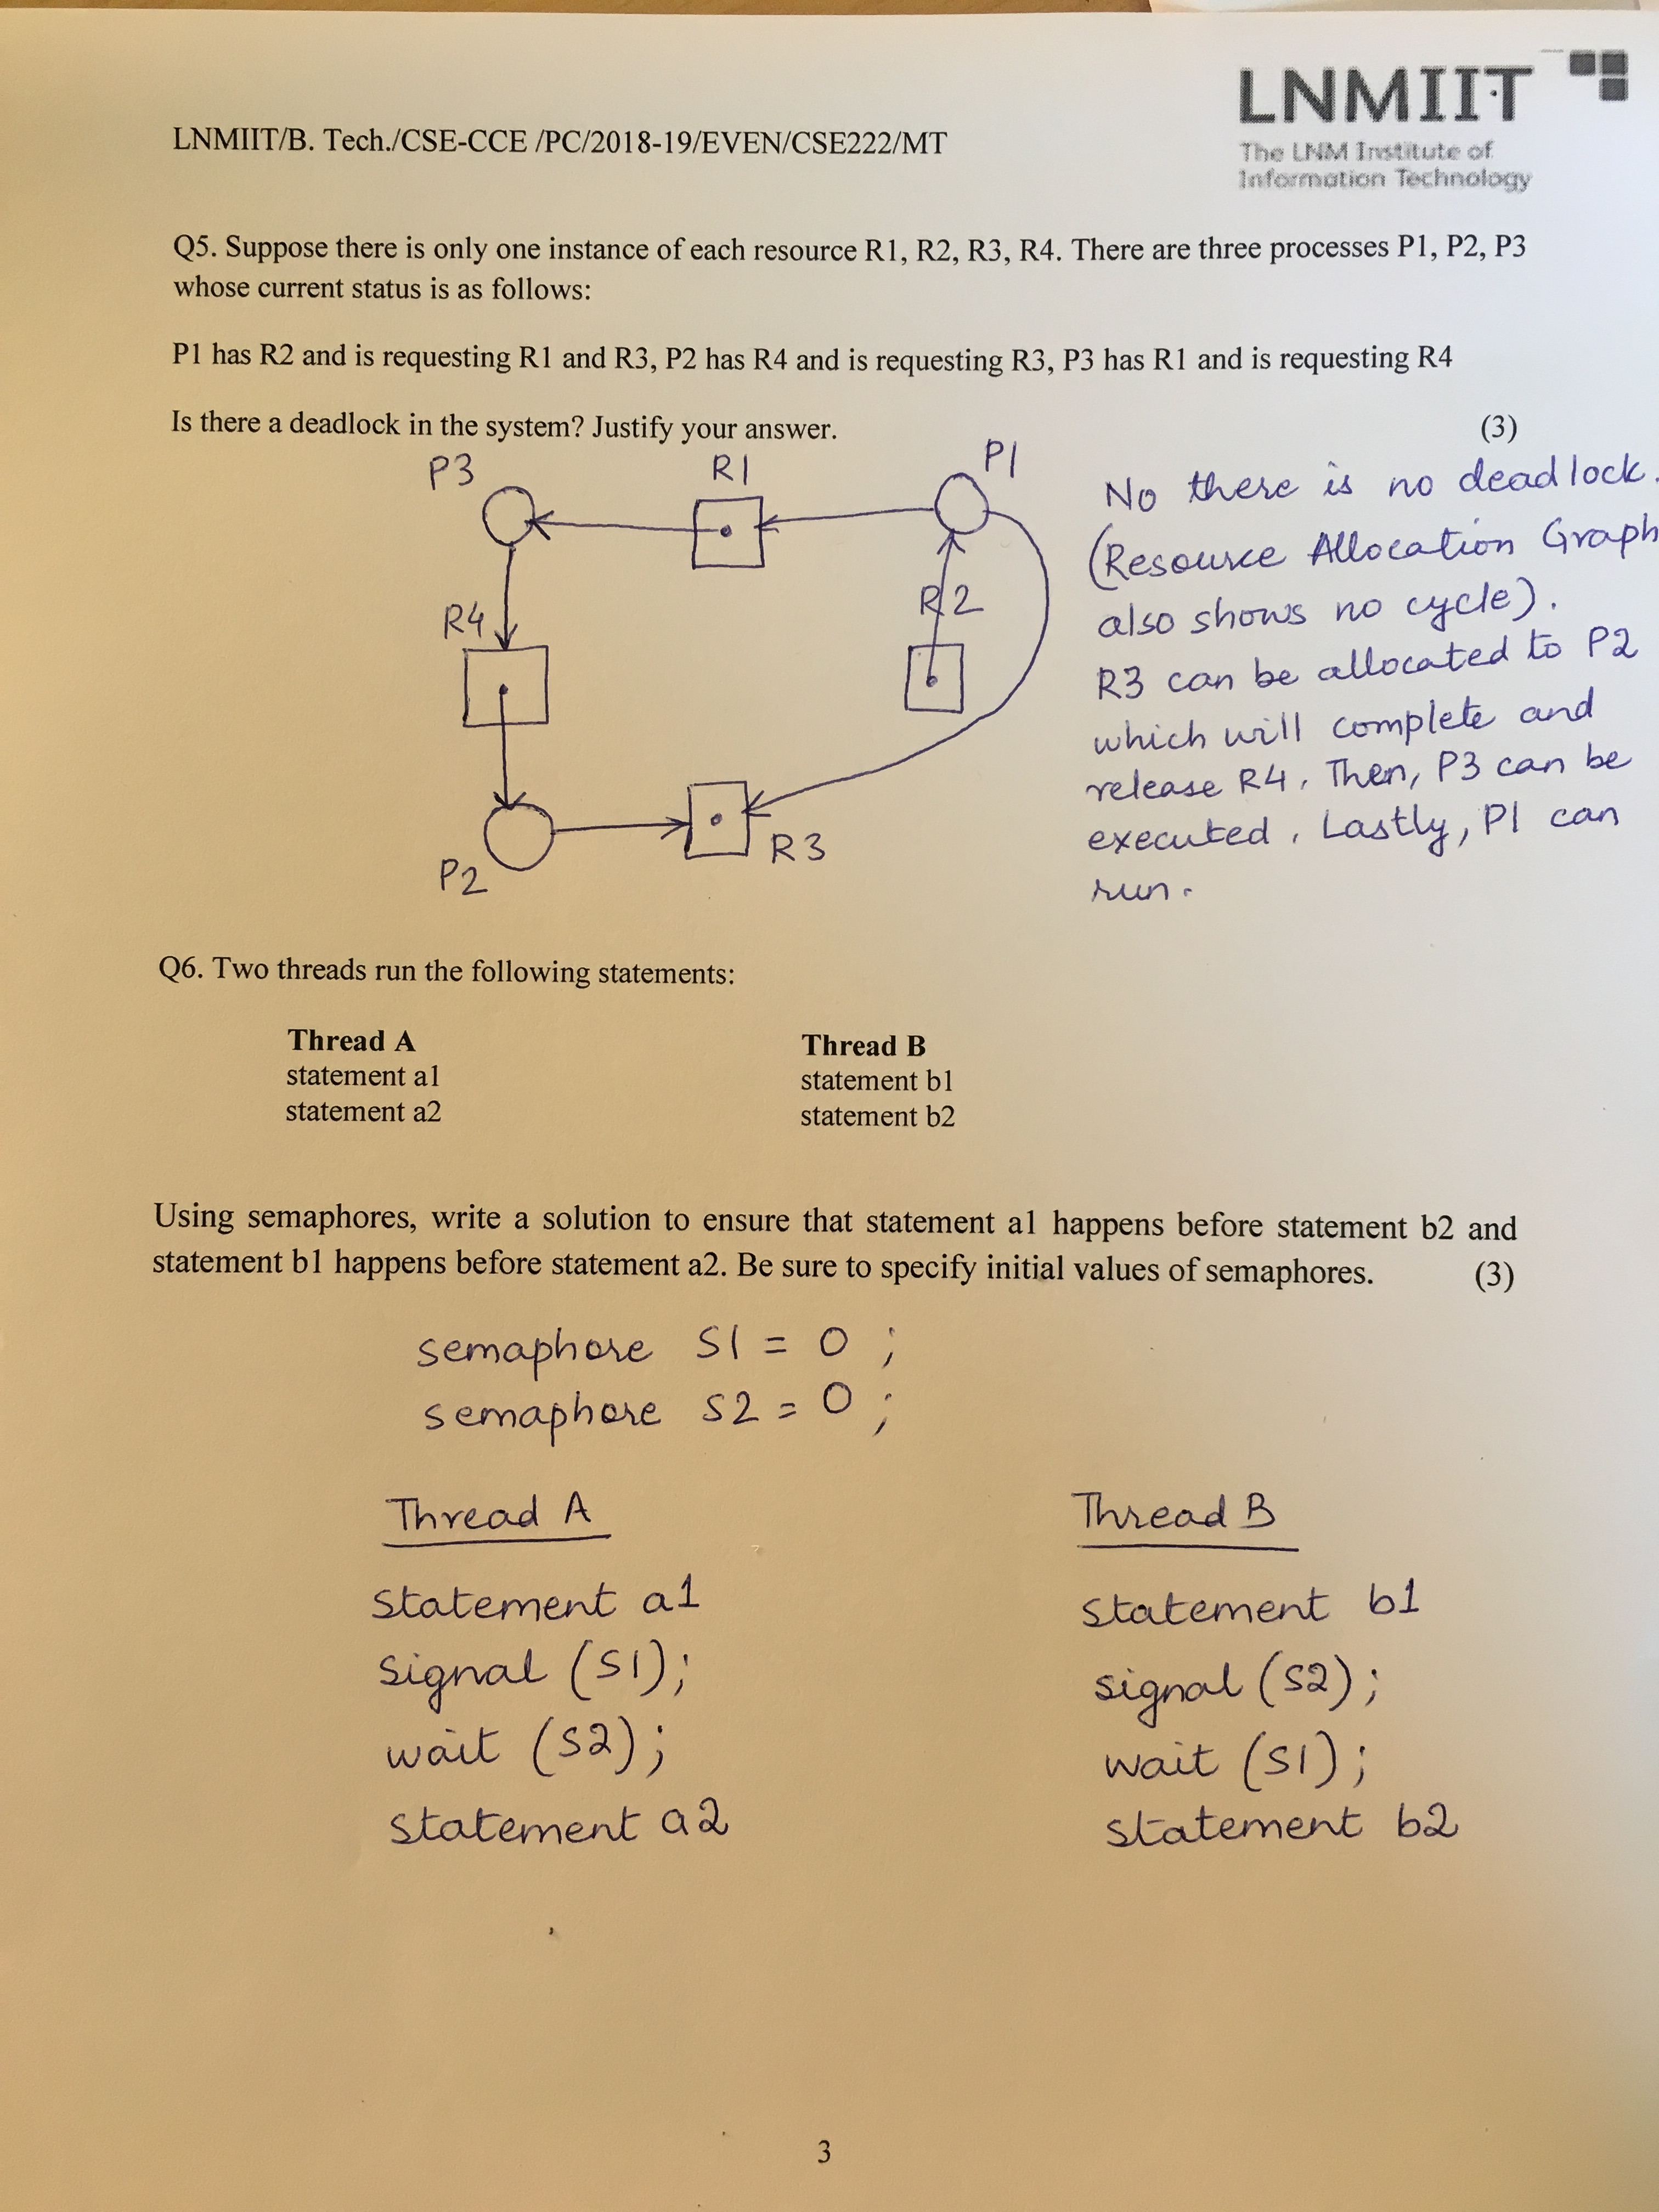 LNMIIT
The LNM Institute of
Information Technology
LNMIIT/B. Tech./CSE-CCE /PC/2018-19/EVEN/CSE222/MT
Q5. Suppose there is only one instance of each resource R1, R2, R3, R4. There are three processes P1, P2, P3
whose current status is as follows:
P1 has R2 and is requesting R1 and R3, P2 has R4 and is requesting R3, P3 has R1 and is requesting R4
Is there a deadlock in the system? Justify your answer. (3)
P3 R1 P1
R4 R2
P2 R3
No there is no deadlock.
(Resource Allocation Graph
also shows no cycle).
R3 can be allocated to P2
which will complete and
release R4. Then, P3 can be
executed. Lastly, P1 can
run.
Q6. Two threads run the following statements:
Thread A Thread B
statement a1 statement b1
statement a2 statement b2
Using semaphores, write a solution to ensure that statement a1 happens before statement b2 and
statement b1 happens before statement a2. Be sure to specify initial values of semaphores. (3)
semaphore S1 = 0 ;
semaphore S2 = 0 ;
Thread A Thread B
statement a1 statement b1
signal (S1); signal (S2);
wait (S2); wait (S1);
statement a2 statement b2
3